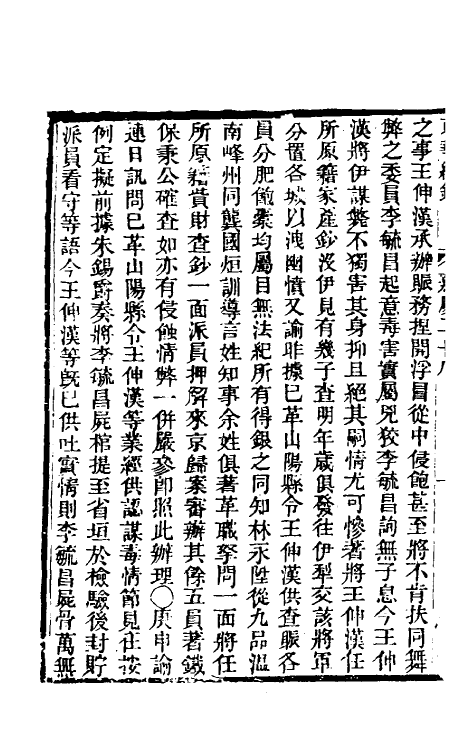 之事王伸漢承辦賑務捏開浮冒從中侵飽甚至將不肯扶同舞
弊之委員李毓昌起意毒害實屬兇狡李毓昌詢無子息今王伸
漢將伊謀斃不獨害其身抑且絕其嗣情尤可慘著將王伸漢任
所原籍家產鈔沒伊見有幾子查明年歲俱發往伊犁交該將軍
分置各城以洩幽憤又諭昨據已革山陽縣令王伸漢供查賑各
員分肥僞橐均屬目無法紀所有得銀之同知林永陞從九品溫
南峰州同龔國烜訓導言姓知事余姓俱著革職拏問一面將任
所原籍貲財查鈔一面派員押解來京歸案審辦其餘五員著鐵
保秉公確查如亦有侵蝕情弊一併嚴參卽照此辦理〇庚申諭
連日訊問已革山陽縣令王伸漢等業經供認謀毒情節見在按
例定擬前據朱錫爵奏將李毓昌屍棺提至省垣於檢驗後封貯
派員看守等語今王伸漢等旣已供吐實情則李毓昌屍骨萬無